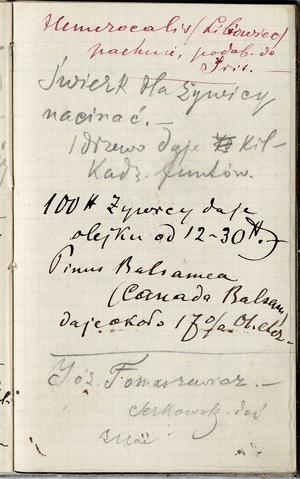 Hemerocalis (Liliowiec)
pachnie, podob. do
Iris.
Świerk dla Żywicy
nacinać. —
1 drzewo daje kil-
kadz. funtów.
100 ℔ Żywicy daje
olejku od 12-30 ℔.)
Pinus Balsamea
(Canada Balsam)
daje około 17% Ol. eter.
Józ. Tomaszewicz. —